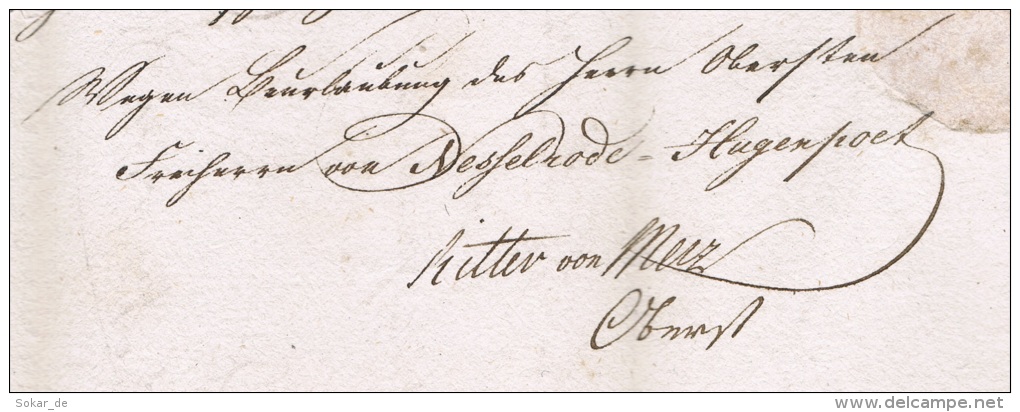 Wegen Beurlaubung des Herrn Obersten
Freiherrn von Nesselrode-Hugenpoet
Ritter von Merz
Oberst
Sokar_de
delcampe.net